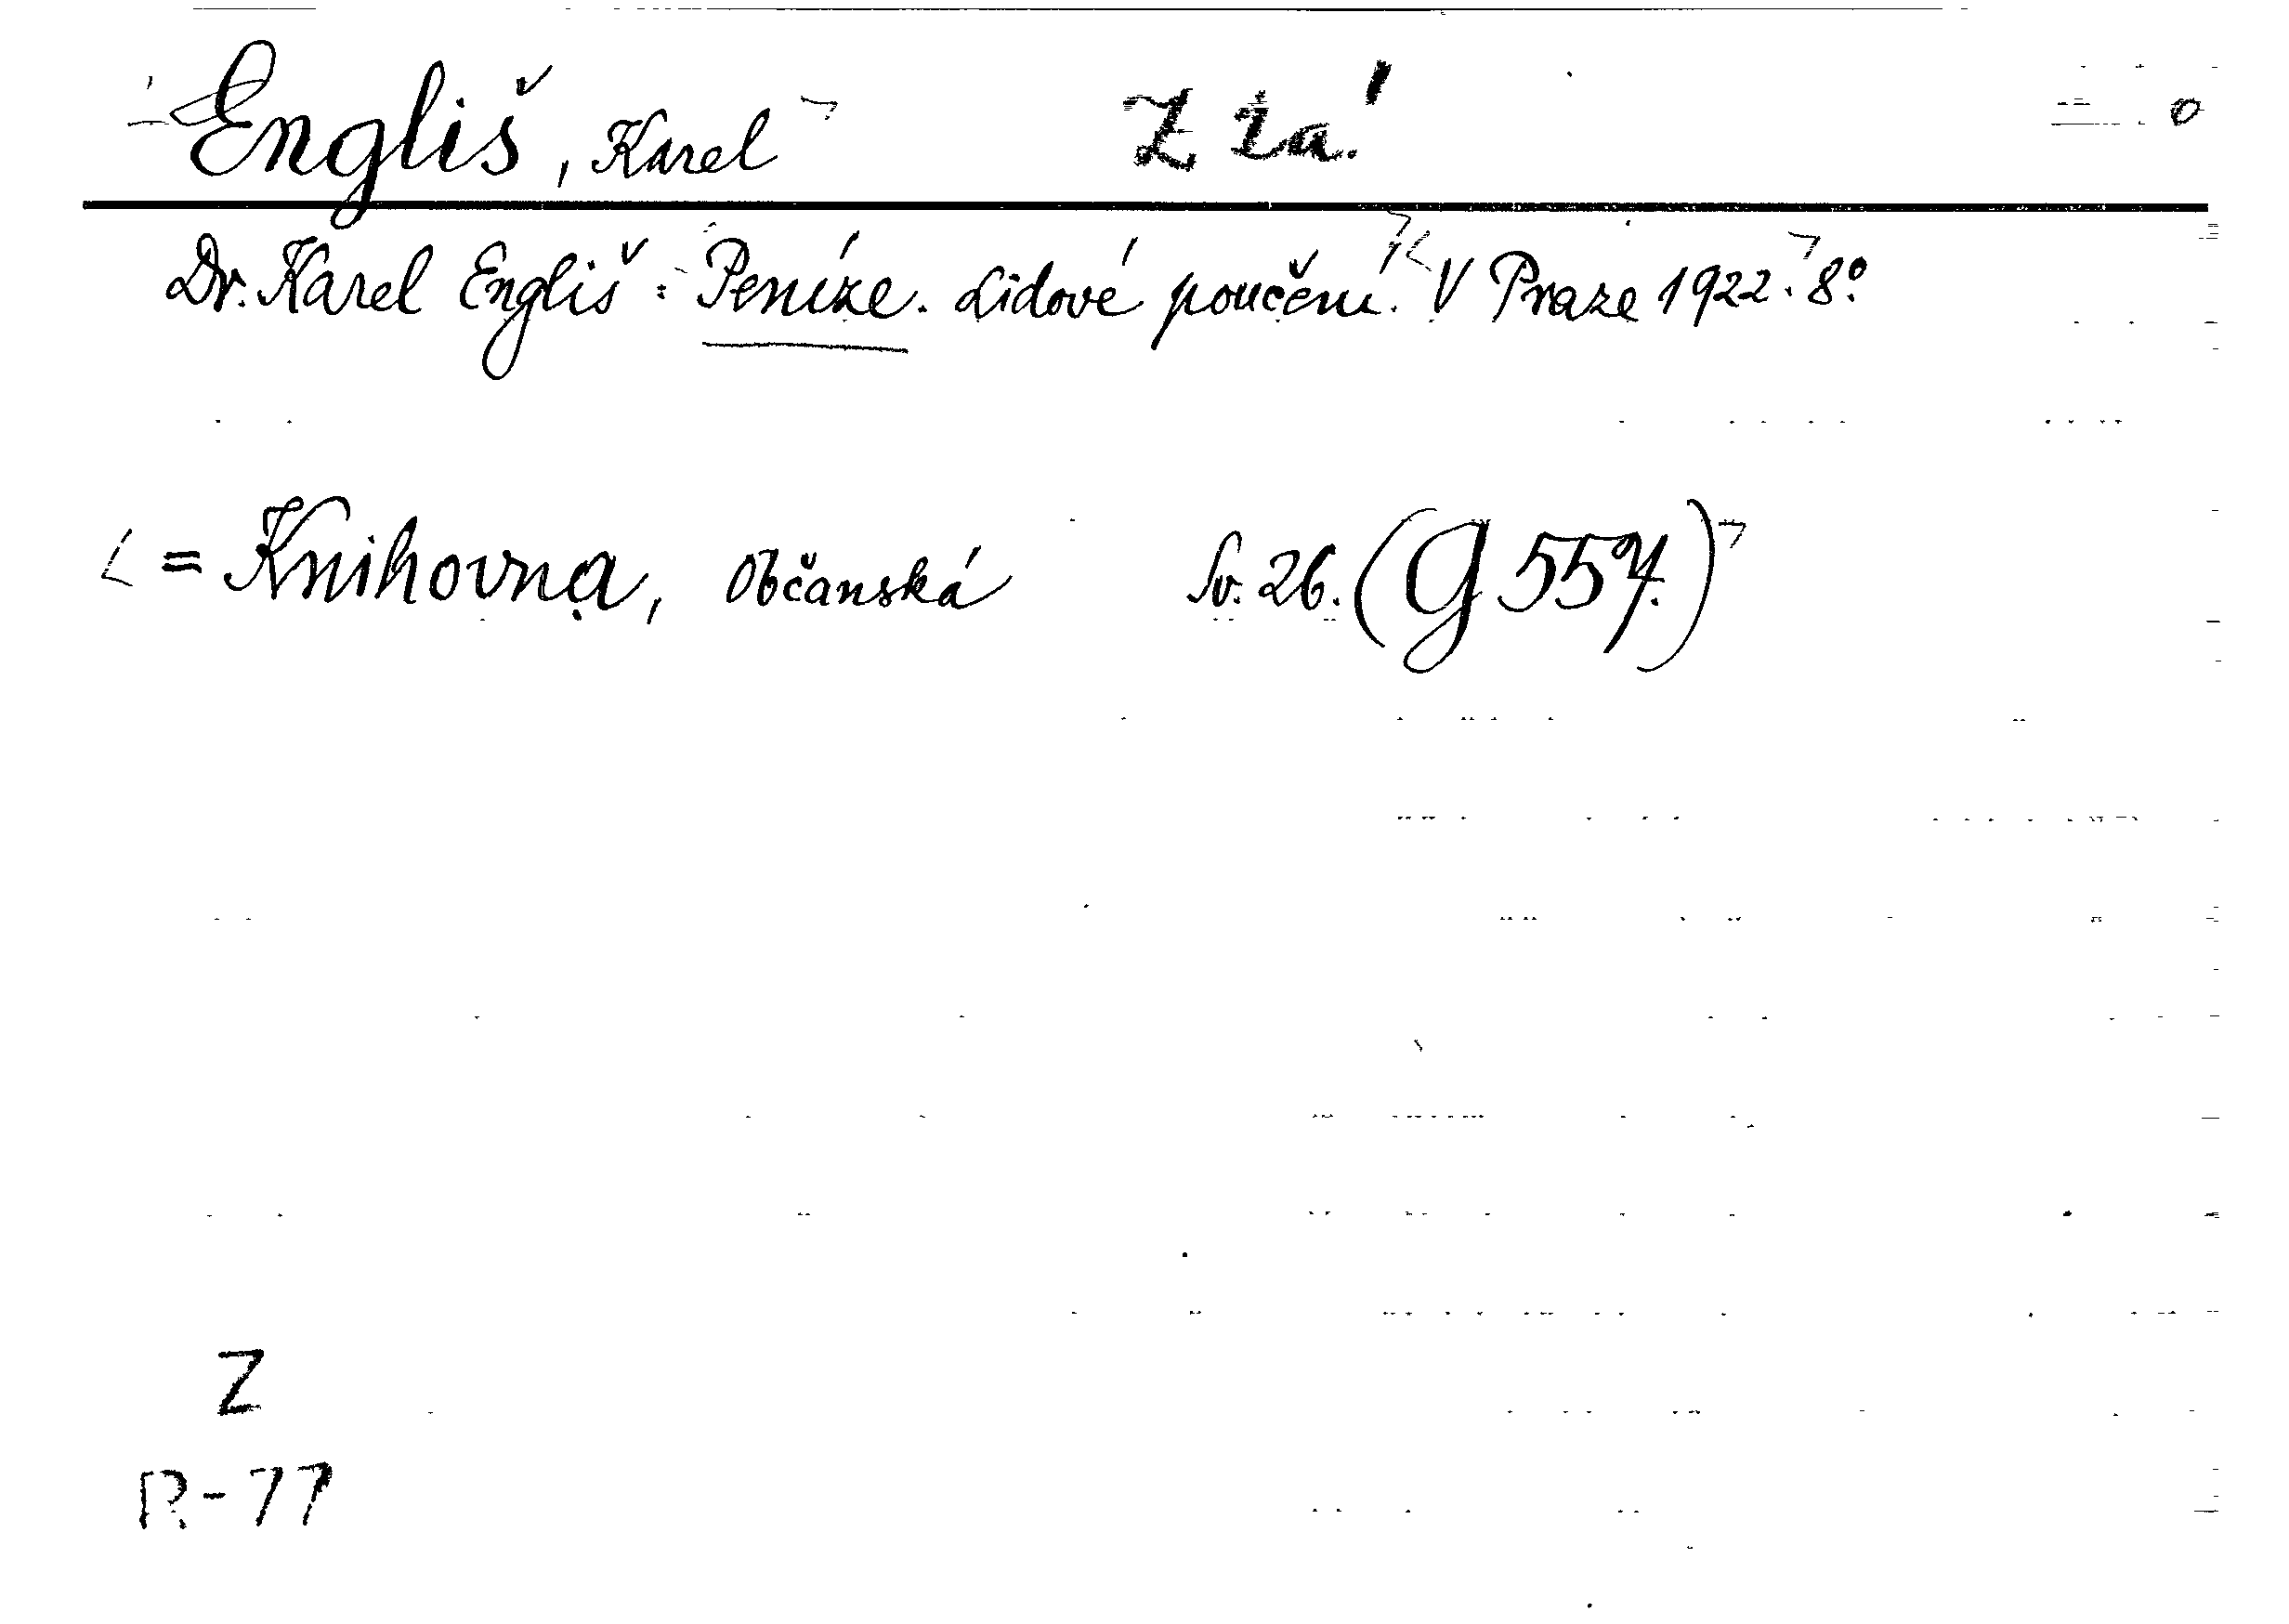 Engliš, Karel
Dr. Karel Engliš: Peníze. Lidové poučení. V Praze 1922. 8°.
= Knihovna, Občanská Sv. 26. (G 557.)
Z
R-77